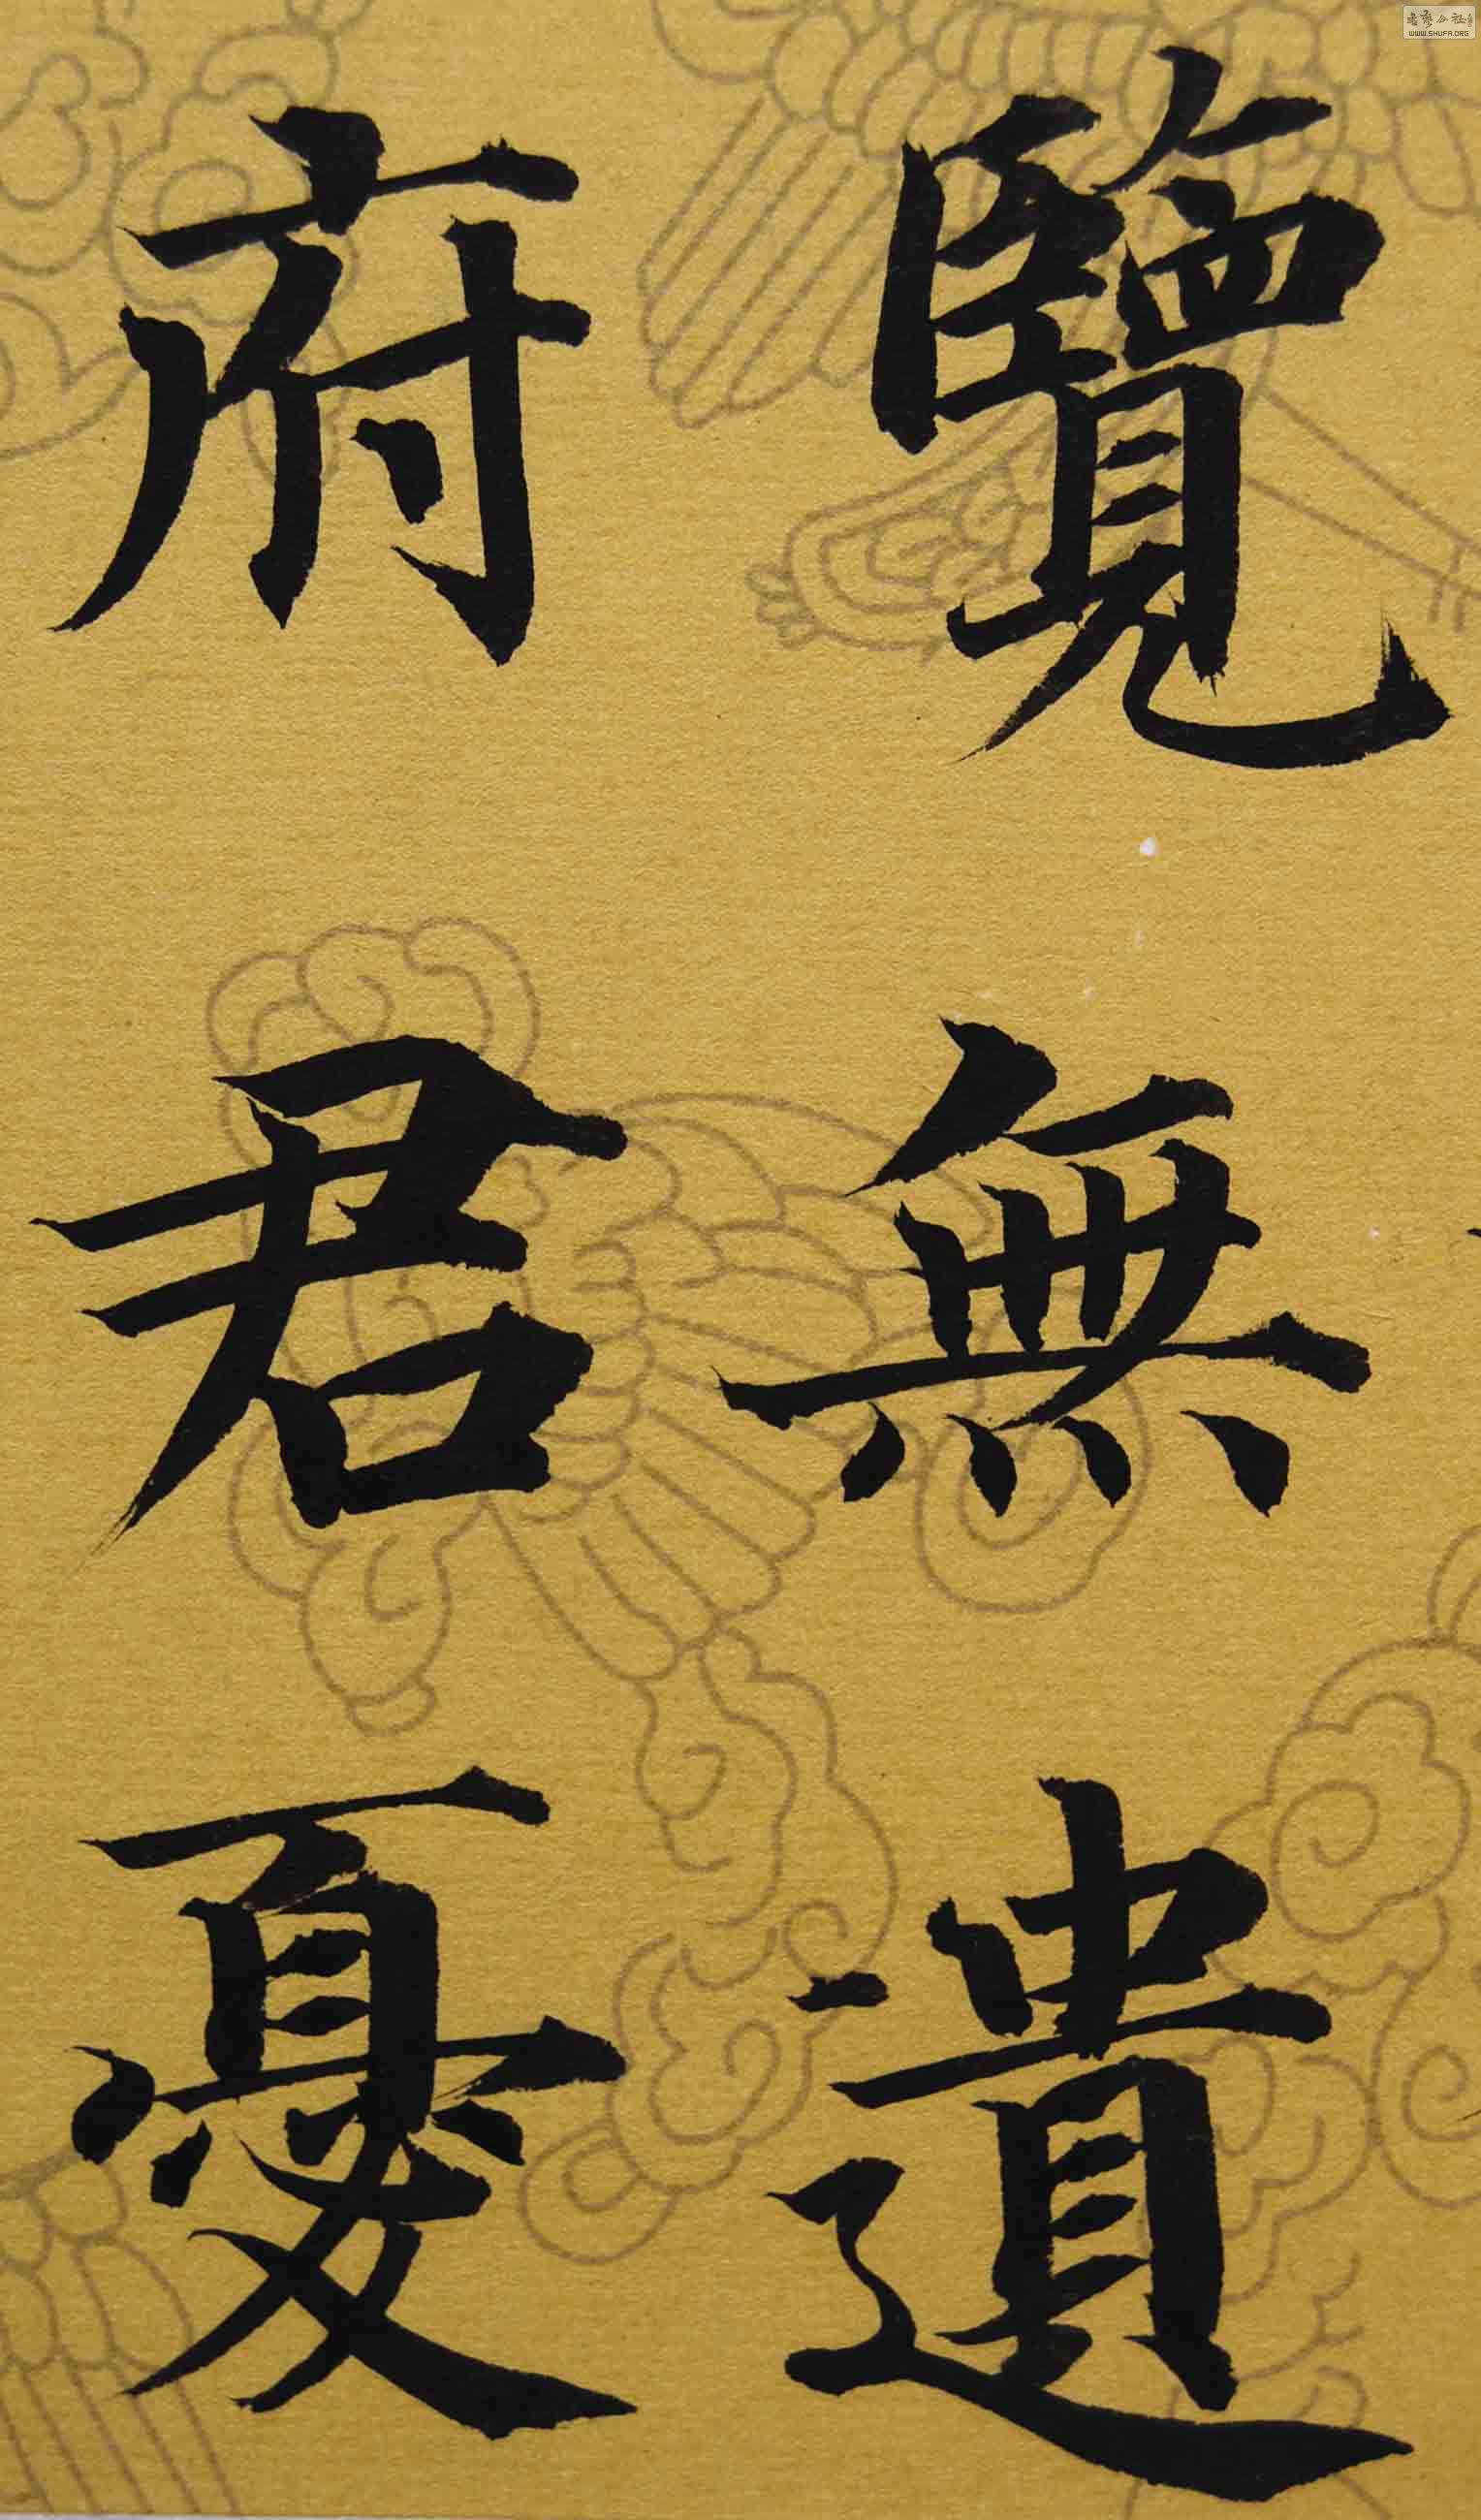 覽無遺
府君憂
書藝公社
WWW.SHUFA.ORG